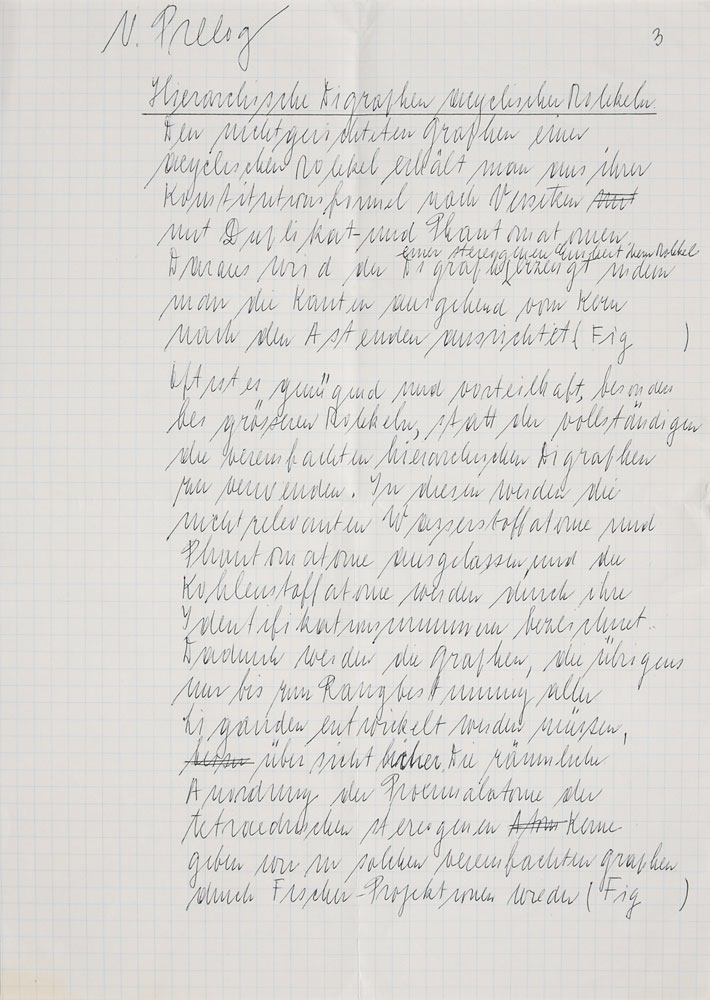 V. Prelog
3
Hierarchische Digraphen acyclischer Molekeln.
Den nichtgerichteten Graphen einer
acyclischen Molekel erhält man aus ihrer
Konstitutionsformel nach Versetzen mit
mit Duplikat- und Phantomatomen.
einer stereogenen Einheit Molekel
Daraus wird der Digraph erzeugt indem
man die Kanten ausgehend vom Kern
nach den Astenden ausrichtet (Fig )
Oft ist es genügend und vorteilhaft, besonders
bei grösseren Molekeln, statt der vollständigen
die vereinfachten hierarchischen Digraphen
zu verwenden. In diesen werden die
nichtrelevanten Wasserstoffatome und
Phantomatome ausgelassen und die
Kohlenstoffatome werden durch ihre
Identifikationsnummern bezeichnet.
Dadurch werden die Graphen, die übrigens
nur bis zum Rangbestimmung aller
Liganden entwickelt werden müssen,
übersichtlicher. Die räumliche
Anordnung der Proximalatome der
tetraedrischen stereogenen Kerne
geben wir in solchen vereinfachten Graphen
durch Fischer-Projektionen wieder (Fig )